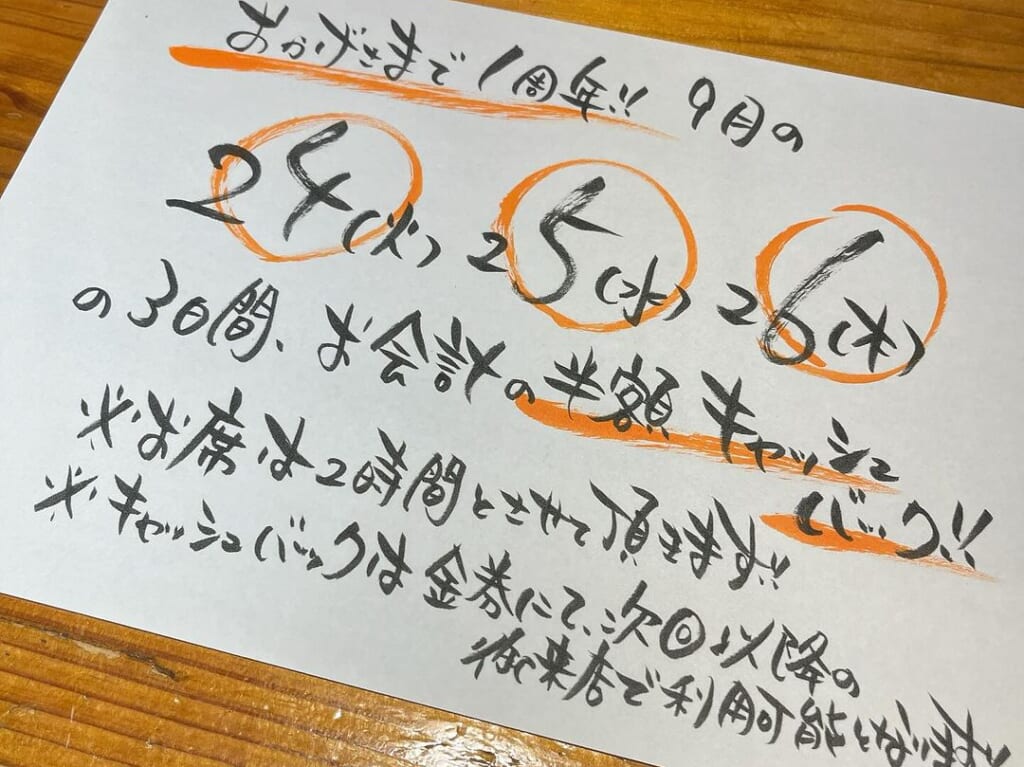 おかげさまで1周年!! 9月の
24(火) 25(水) 26(木)
の3日間、お会計の半額キャッシュ
バック!!
※お席は2時間とさせて頂きます!!
※キャッシュバックは金券にて、次回以降の
御来店で利用可能となります!!